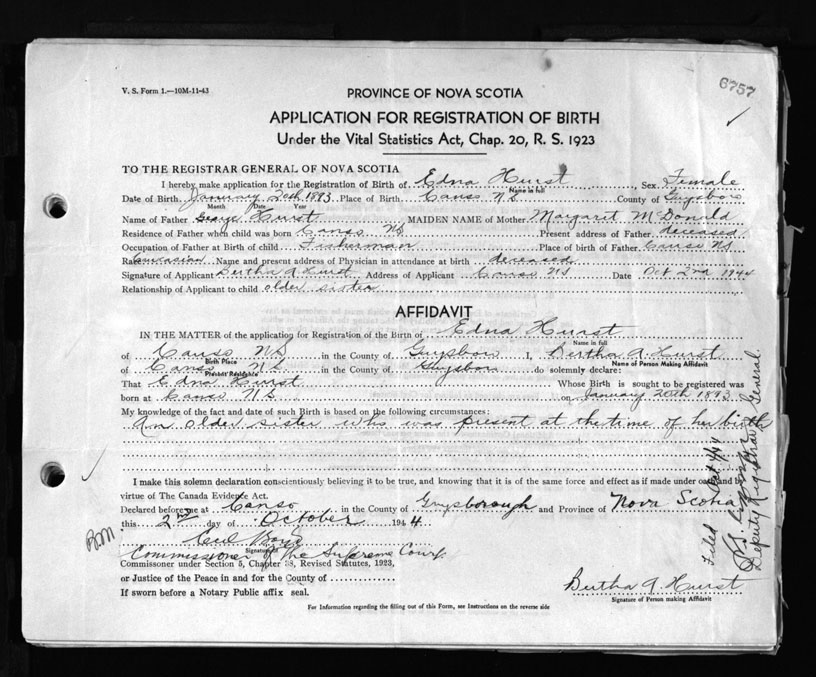 V. S. Form 1.—10M-11-43
6757
PROVINCE OF NOVA SCOTIA
APPLICATION FOR REGISTRATION OF BIRTH
Under the Vital Statistics Act, Chap. 20, R. S. 1923
TO THE REGISTRAR GENERAL OF NOVA SCOTIA
I hereby make application for the Registration of Birth of Edna Hurst Sex Female
Name in full
Date of Birth January 20th 1893 Place of Birth Canso N S County of Guysboro
Month Date Year
Name of Father George Hurst MAIDEN NAME of Mother Margaret McDonald
Residence of Father when child was born Canso NS Present address of Father deceased
Occupation of Father at Birth of child Fisherman Place of birth of Father Canso NS
Race Caucasian Name and present address of Physician in attendance at birth deceased
Signature of Applicant Bertha A Hurst Address of Applicant Canso NS Date Oct 2nd 1944
Relationship of Applicant to child older sister
AFFIDAVIT
IN THE MATTER of the application for Registration of the Birth of Edna Hurst
Name in full
of Canso NS in the County of Guysboro I, Bertha A. Hurst
Birth Place Name of Person Making Affidavit
of Canso N S. in the County of Guysboro do solemnly declare:
Present Residence
That Edna Hurst Whose Birth is sought to be registered was
born at Canso N S. on January 20th 1893
My knowledge of the fact and date of such Birth is based on the following circumstances:
An older sister who was present at the time of her birth
I make this solemn declaration conscientiously believing it to be true, and knowing that it is of the same force and effect as if made under oath and by
virtue of The Canada Evidence Act.
Declared before me at Canso in the County of Guysborough and Province of Nova Scotia
this 2nd day of October 1944
Cecil
Signature
Commissioner of The Supreme Court
Commissioner under Section 5, Chapter 38, Revised Statutes, 1923,
or Justice of the Peace in and for the County of
If sworn before a Notary Public affix seal.
Bertha A. Hurst
Signature of Person making Affidavit
For Information regarding the filling out of this Form, see Instructions on the reverse side
Filed Oct 4/44
Deputy Registrar General